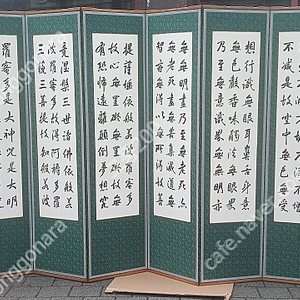 不減是故空中無色無受
想行識無眼耳鼻舌身意
無色聲香味觸法無眼界
乃至無意識界無無明亦
無無明盡乃至無老死亦
無老死盡無苦集滅道無
智亦無得以無所得故菩
提薩埵依般若波羅蜜多
故心無罣礙無罣礙故無
有恐怖遠離顚倒夢想究
竟涅槃三世諸佛依般若
波羅蜜多故得阿耨多羅
三藐三菩提故知般若波
羅蜜多是大神呪是大明
onggonara
cafe.naver